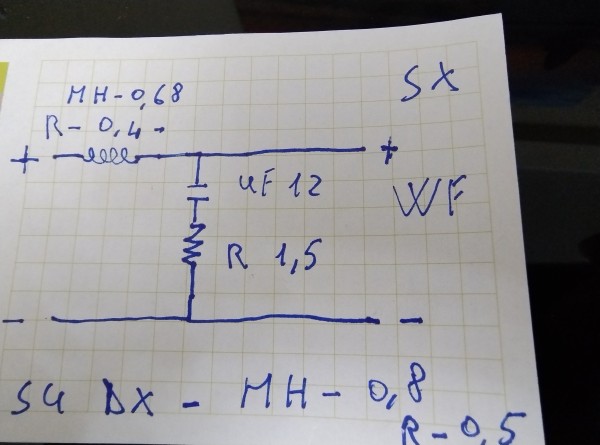 SX
MH-0,68
R-0,4
+ +
UF 12
WF
R 1,5
- -
SU DX - MH-0,8
R-0,5